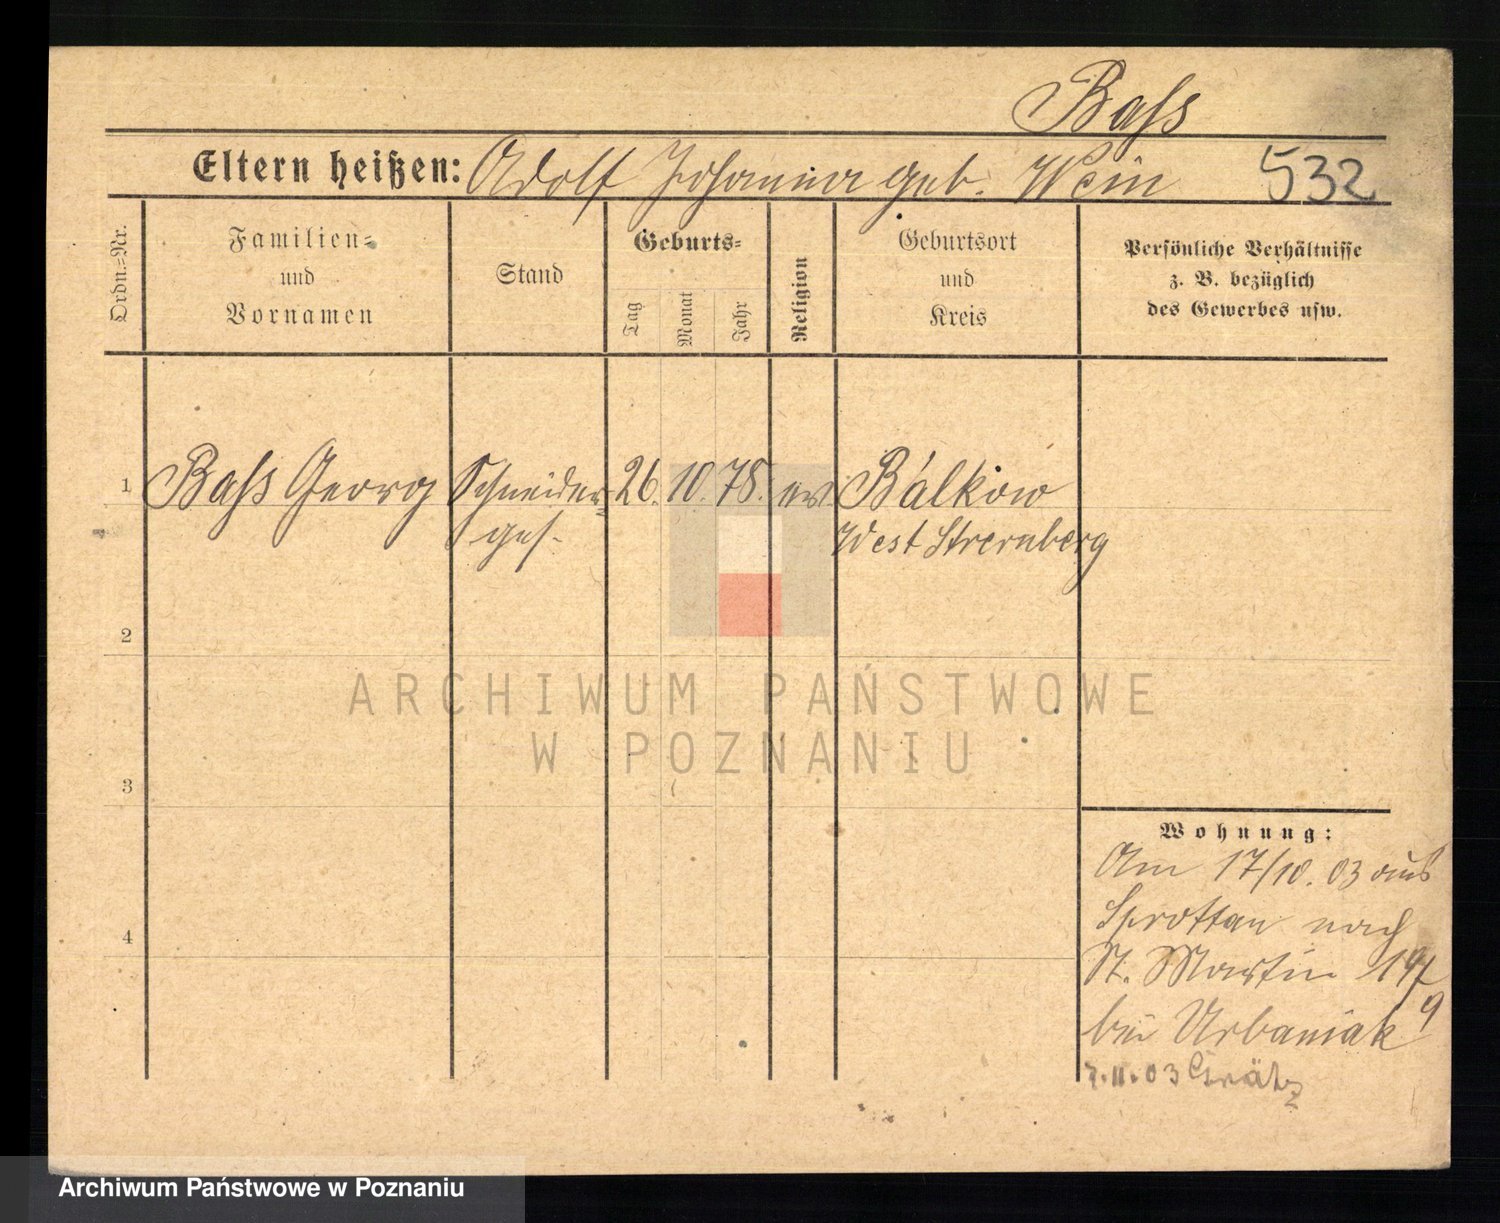 Baſs
Eltern heißen: Adolf Johanna geb. Wein 532
Ordn.=Nr.
Familien=
und
Vornamen
Stand
Geburts=
Tag
Monat
Jahr
Religion
Geburtsort
und
Kreis
Persönliche Verhältnisse
z. B. bezüglich
des Gewerbes usw.
1 Baſs Georg Schneider= 26. 10. 78. ev. Bálkow
ges. West Strernberg
2
3
4
ARCHIWUM PAŃSTWOWE
W POZNANIU
Wohnung:
Am 17/10. 03 aus
Sprottau nach
St. Martin
bei Urbaniak
7.11.03 Grätz
Archiwum Państwowe w Poznaniu